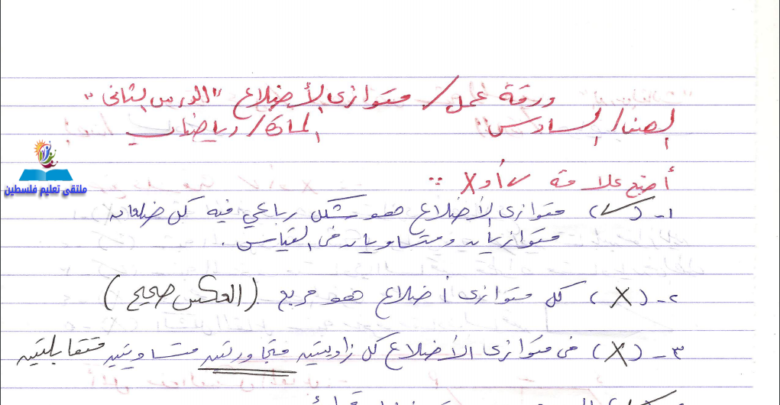 ورقة عمل / متوازي الأضلاع "الدرس الثاني"
الصف / السادس المادة / رياضيات
أضع علامة ✓ أو X :
ملتقى تعليم فلسطين
١- (✓) متوازي الأضلاع هو شكل رباعي فيه كل ضلعان
متوازيان ومتساويان في القياس .
٢- (X) كل متوازي أضلاع هو مربع (العكس صحيح)
٣- (X) في متوازي الأضلاع كل زاويتين متجاورتين متساويتين متقابلتين